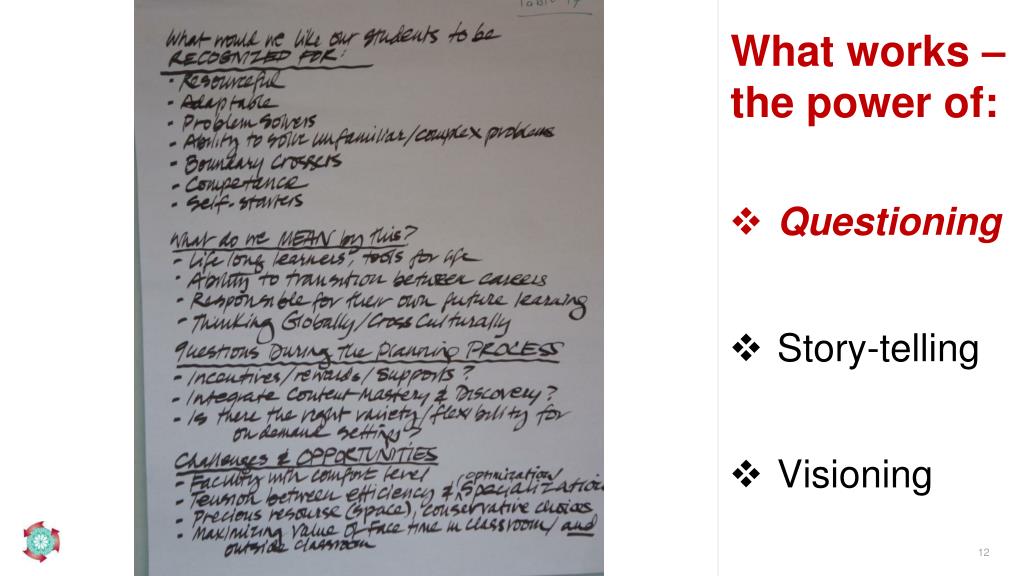 Table 14
What would we like our students to be
RECOGNIZED FOR:
- Resourceful
- Adaptable
- Problem Solvers
- Ability to solve unfamiliar/complex problems
- Boundary Crossers
- Competance
- Self-starters
What do we MEAN by this?
- Life long learners, tools for life
- Ability to transition between careers
- Responsible for their own future learning
- Thinking Globally/Cross Culturally
Questions During the Planning PROCESS
- Incentives/rewards/Supports?
- Integrate Content Mastery & Discovery?
- Is there the right variety/flexibility for
on demand settings?
Challenges & OPPORTUNITIES
- Faculty with comfort level
- Tension between efficiency & (optimization/
Specialization
- Precious resourse (space), conservative choices
- Maximizing value of Face time in classroom/and
outside classroom
What works –
the power of:
❖ Questioning
❖ Story-telling
❖ Visioning
12